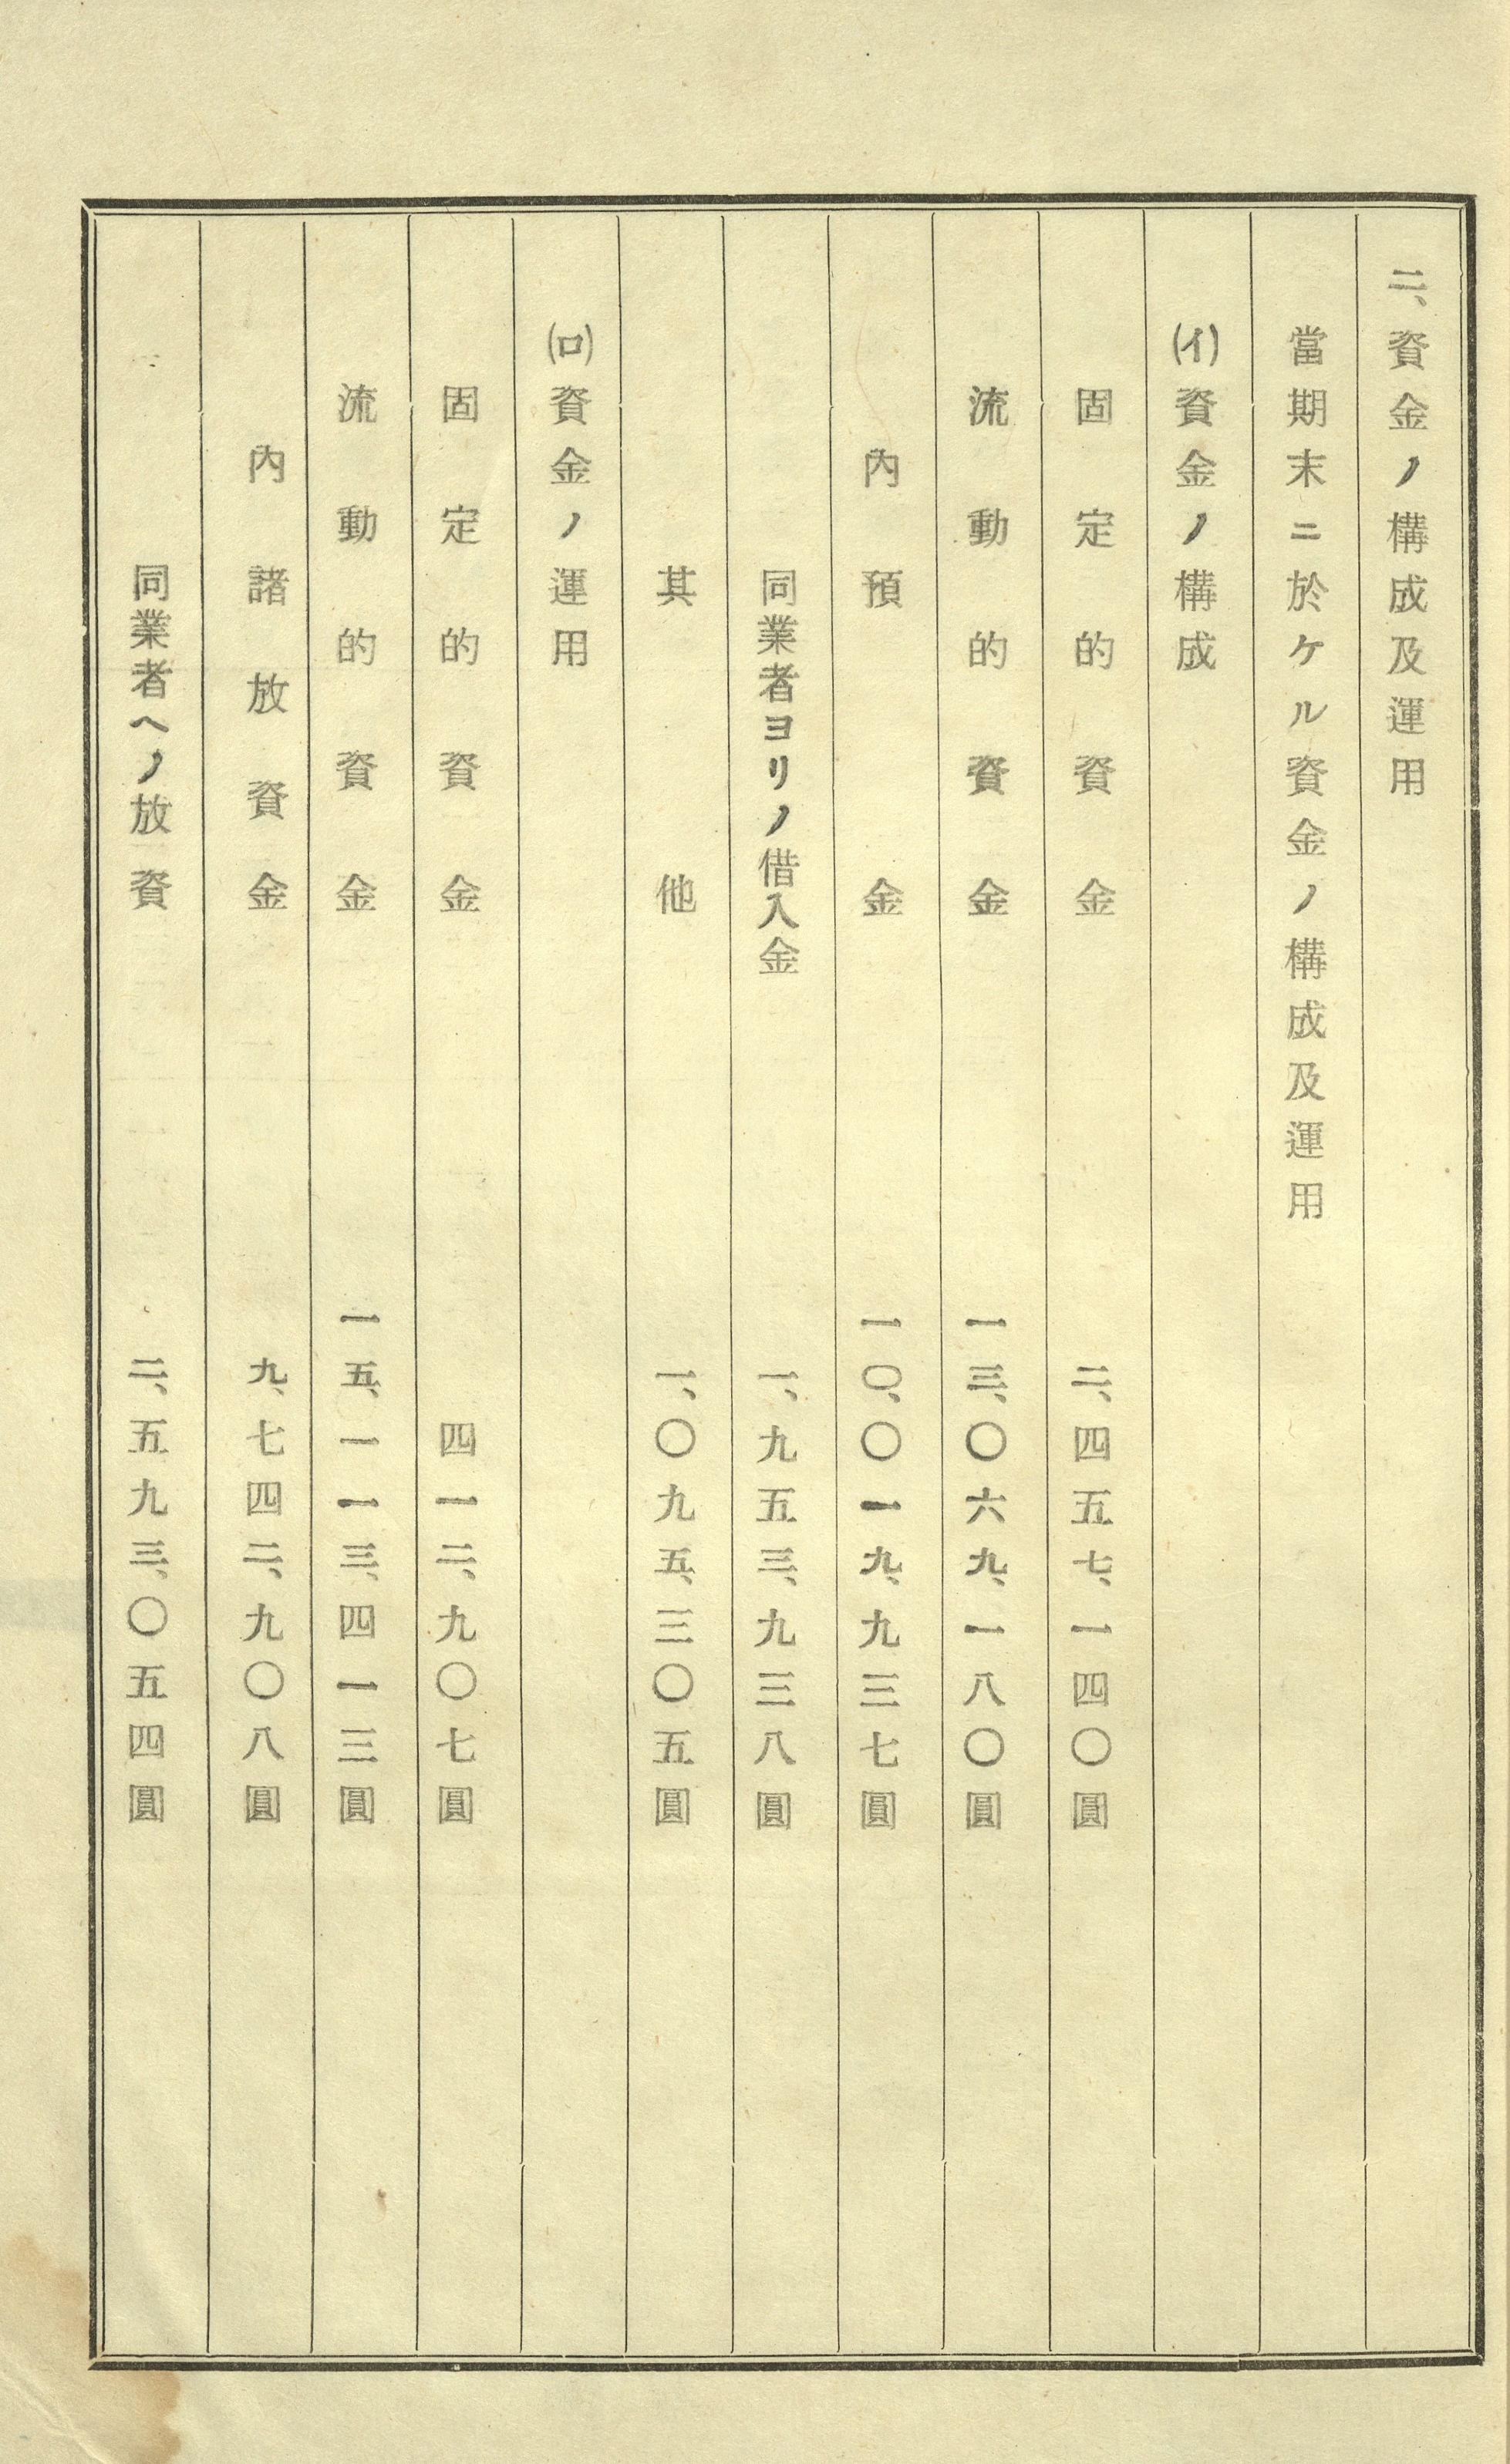 二、資金ノ構成及運用
當期末ニ於ケル資金ノ構成及運用
(イ)資金ノ構成
固定的資金 二、四五七、一四〇圓
流動的資金 一三、〇六九、一八〇圓
內預金 一〇、〇一九、九三七圓
同業者ヨリノ借入金 一、九五三、九三八圓
其他 一、〇九五、三〇五圓
(ロ)資金ノ運用
固定的資金 四一二、九〇七圓
流動的資金 一五、一一三、四一三圓
內諸放資金 九、七四二、九〇八圓
同業者ヘノ放資 二、五九三、〇五四圓